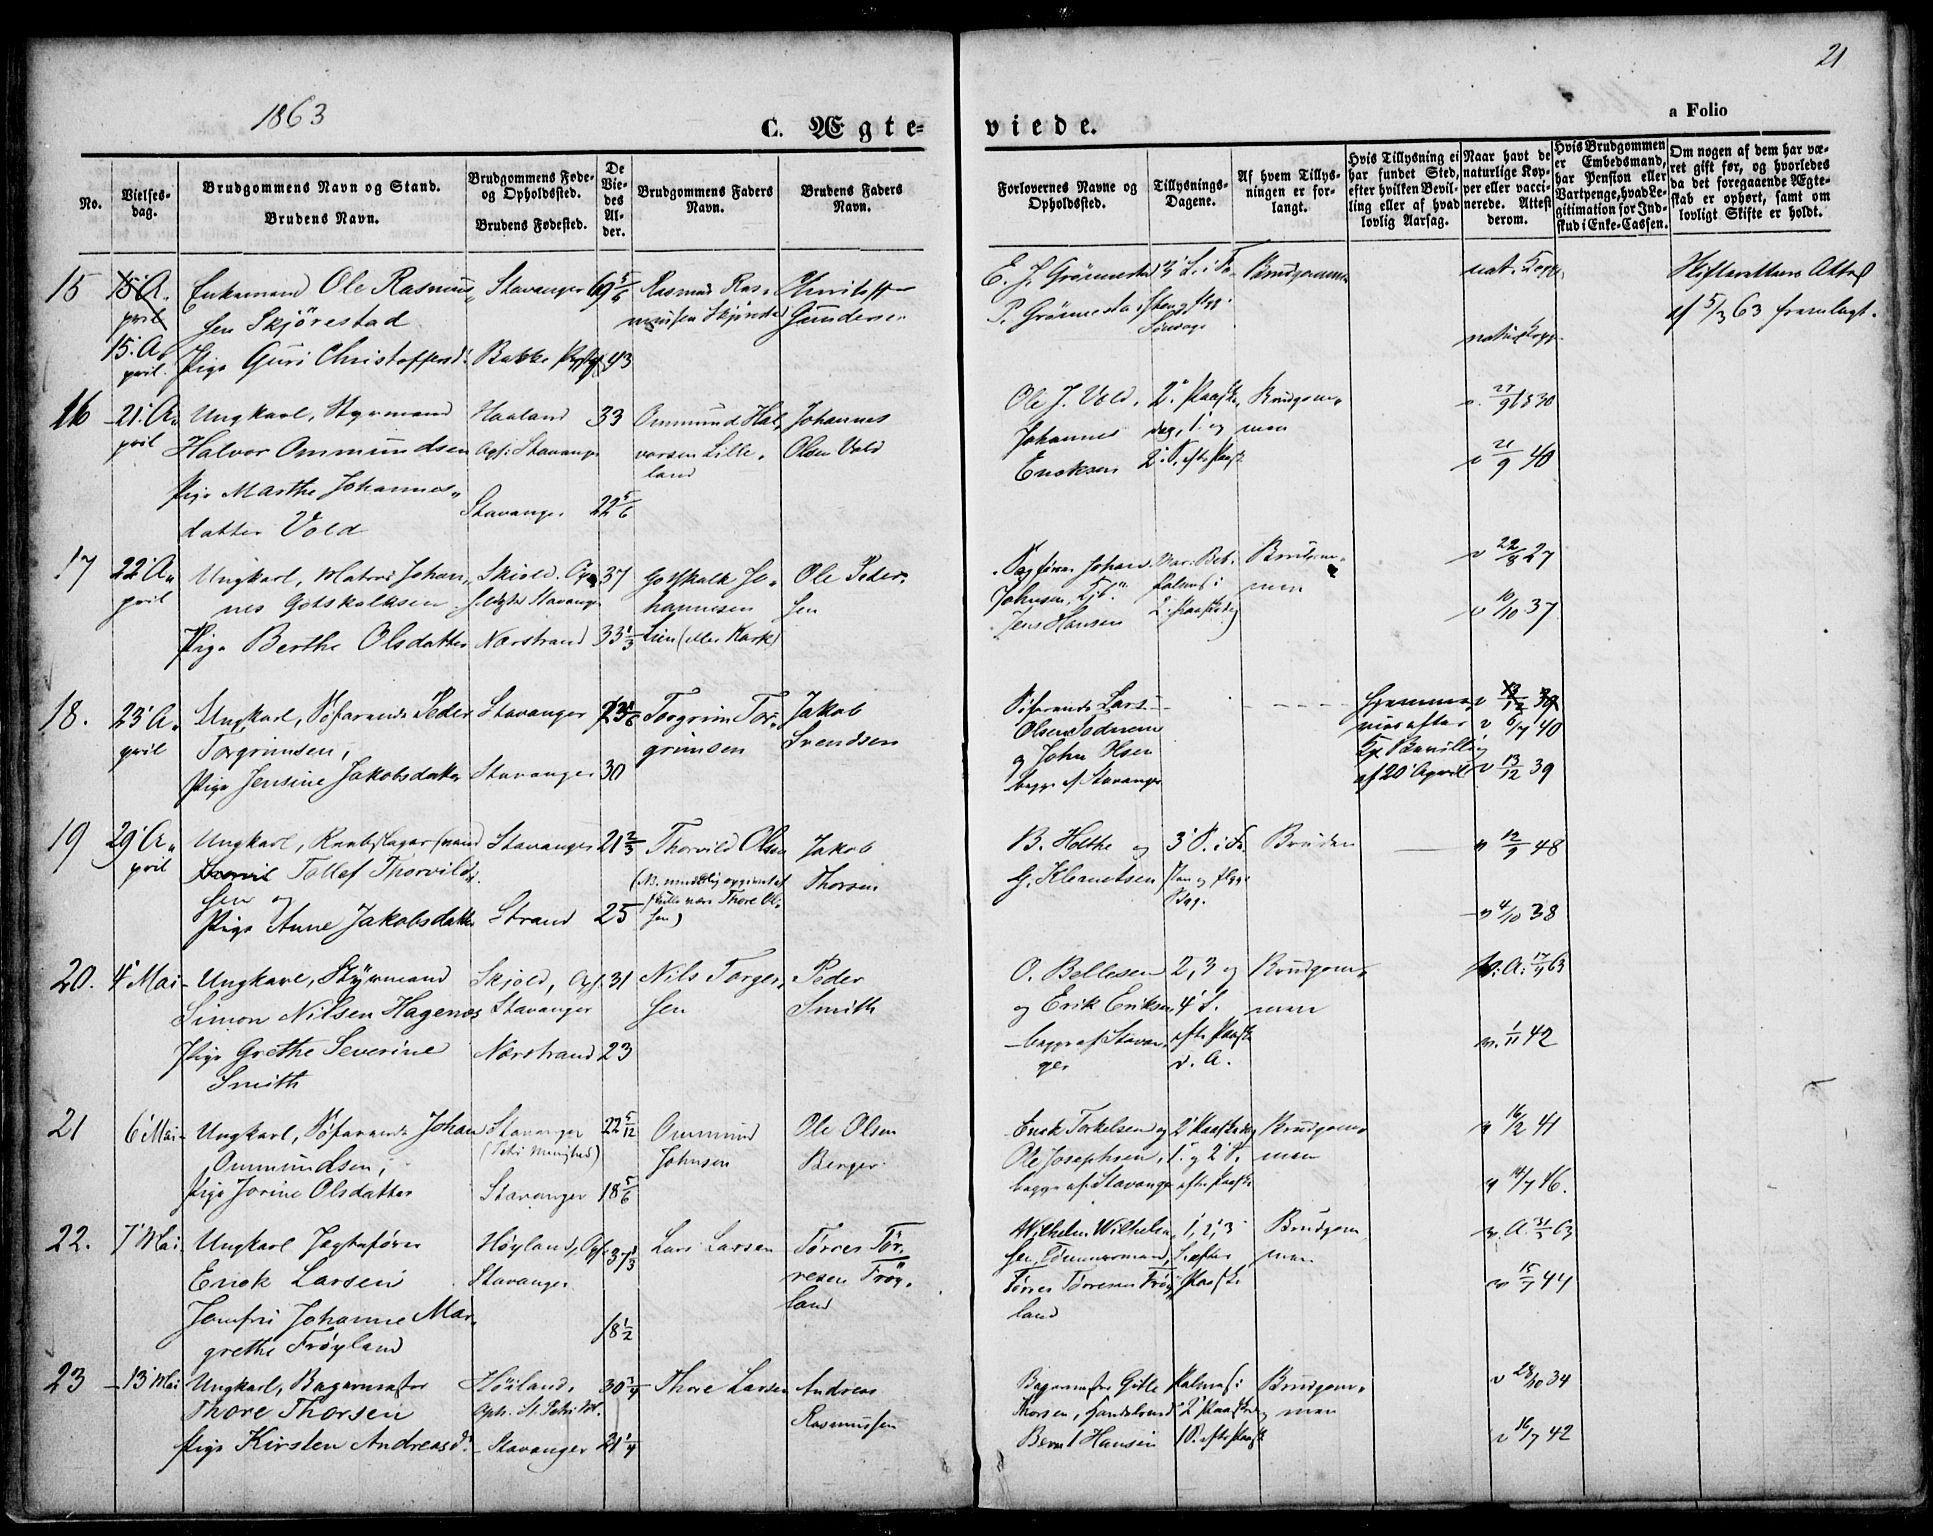 21
1863
C. Ægte-
viede.
a Folio
No.
Vielses-
dag.
Brudgommens Navn og Stand.
Brudens Navn.
Brudgommens Føde-
og Opholdssted.
Brudens Fødested.
De
Vie-
des
Al-
der.
Brudgommens Faders
Navn.
Brudens Faders
Navn.
Forlovernes Navne og
Opholdssted.
Tillysnings-
Dagene.
Af hvem Tillys-
ningen er for-
langt.
Hvis Tillysning ei
har fundet Sted,
efter hvilken Bevil-
ling eller af hvad
lovlig Aarsag.
Naar havt de
naturlige Kop-
per eller vacci-
nerede. Attest
derom.
Hvis Brudgommen
er Embedsmand,
har Pension eller
Vartpenge, hvad Le-
gitimation for Ind-
skud i Enke-Cassen.
Om nogen af dem har væ-
ret gift før, og hvorledes
da det foregaaende Ægte-
skab er ophørt, samt om
lovligt Skifte er holdt.
15 15 A.
pril
15. A.
pril.
Enkemand Ole Rasmus-
sen Skjörestad
Pige Guri Christoffersd.
Stavanger
Bakke
69 5/6
43
Rasmus Ras-
mussen Skjörestad
Christoffer
Gundersen
E. J. Grönnestad
P. Grönnestad
3 S. i Fa-
Søndage
Brudgommen
nat. Kopp.
natur. Kopp.
Skifterettens Attest
af 5/3 63 fremlagt.
16 21 A-
pril
Ungkarl, Styrmand
Halvor Ommundsen
Pige Marthe Johannes-
datter Vold
Haaland
Oph: Stavanger
Stavanger
33
22 5/6
Ommund Hal-
vorsen Lille-
land
Johannes
Olsen Vold
Ole J. Vold,
Johannes
Ericksen
2. Paaske-
dag, 1. og
2. S. efter Paaske
Brudgom-
men
v. 27/9 1830
v 21/9 40
17 22 A-
pril
Ungkarl, Matros Johan-
nes Gotskalksen
Pige Berthe Olsdatter
Skjold. Op-
holdss Stavanger
Nærstrand
37
33 1/3
Gotskalk Jo-
hannesen
Lien (eller Kark)
Ole Peder-
sen
Johan
Johnsen,
Jens Hansen
Mar. Beb.
Palmes.
2. Paaskedag
Brudgom-
men
v 22/8 27
v 10/10 37
18. 23 A-
pril
Ungkarl, Søfarende Peder
Torgrimsen,
Pige Jensine Jakobsdatter
Stavanger
Stavanger
23 1/6
30
Torgrim Tor-
grimsen
Jakob
Svendsen
Søfarende Lars
Olsen
og John Olsen
begge af Stavanger
efter
Kgl. Bevilling
af 20 April
v 13/12 39
v 6/7 40
v 13/12 39
19 29 A-
pril
Ungkarl, Reebslagersvend
Tollef Thorvild-
sen og
Pige Anne Jakobsdatter
Stavanger
Strand
21 2/3
25
Thorvild Olsen
(NB. mundtlig opgivet at
skulle være Thore Ol-
sen)
Jakob
Thorsen
B. Holthe og
G. Klemetsen
3 S. i Fa-
sten og flgg.
Bruden
v 12/9 48
v 4/10 38
20. 4 Mai
Ungkarl, Styrmand
Simon Nilsen Hagenæs
Pige Grethe Severine
Smith
Skjold, Oph.
Stavanger
Nærstrand
31
23
Nils Torger-
sen
Peder
Smith
O. Bellesen
og Erik Eriksen
begge af Stavan-
ger
2, 3 og
4 S.
efter Paaske
d. A.
Brudgom-
men
v. A. 17/4 63
v. 1/11 42
21 6 Mai
Ungkarl, Søfarende Johan
Ommundsen,
Pige Jorine Olsdatter
Stavanger
(Petri Menighed)
Stavanger
22 5/12
18 5/6
Ommund
Johnsen
Ole Olsen
Berger
Erick Torkelsen og
Ole Josephsen,
begge af Stavanger
2 Paaskedag
1. og 2 S.
efter Paaske
Brudgom-
men
v 16/2 41
v 14/7 46.
22. 7 Mai
Ungkarl Jagtefører
Erick Larsen
Jomfru Johanne Mar-
grethe Tröyland
Höyland, Oph.
Stavanger
37 1/3
18 1/2
Lars Larsen
Törres Tör-
resen Tröy-
land
Wilhelm Wilhelm-
sen, Tömmermand,
Törres Törresen Tröy-
land
1, 2, 3
S. efter
Paaske
Brudgom-
men
v. A. 31/3 63
v 15/7 44
23 13 Mai
Ungkarl, Bagermester
Thore Thorsen
Pige Kirsten Andreasd.
Höiland,
Oph. St. Petri M.
Stavanger
30 1/4
21 1/4
Thore Larsen
Andreas
Rasmussen
Bagermester Gitle
Thorsen, Handelsmand
Bernt Hansen
Palmes.
2 Paaskedag
1 S. efter Paaske
Brudgom-
men
v 28/10 34
v 16/7 42